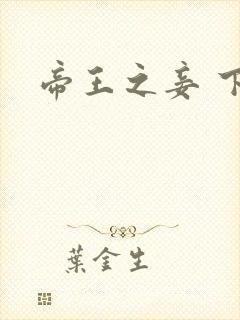 帝王之妾 下
葉金生